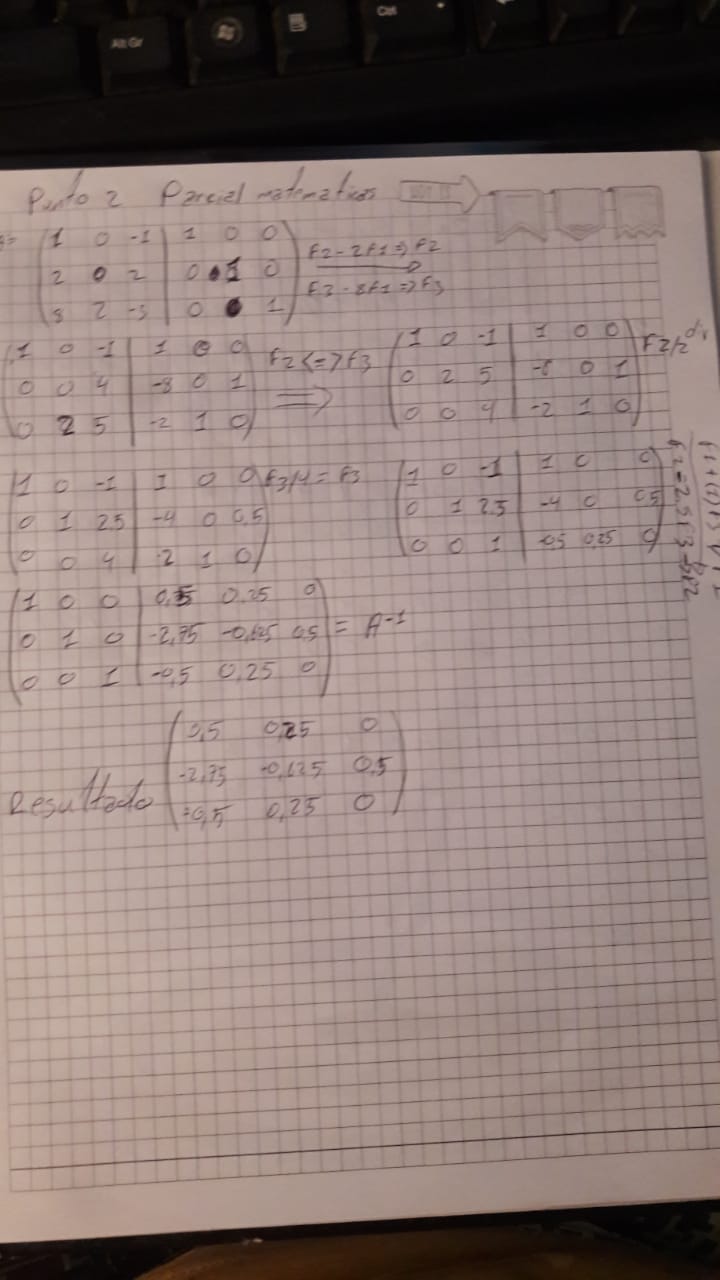 Alt Gr
Ctrl
Punto 2 Parcial matematicas
1 0 -1 | 1 0 0
2 0 2 | 0 1 0
8 2 -3 | 0 0 1
F2-2F1=>F2
F3-8F1=>F3
1 0 -1 | 1 0 0
0 0 4 | -8 0 1
0 2 5 | -2 1 0
F2<=>F3
1 0 -1 | 1 0 0
0 2 5 | -8 0 1
0 0 4 | -2 1 0
F2/2
1 0 -1 | 1 0 0
0 1 2,5 | -4 0 0,5
0 0 4 | -2 1 0
F3/4 = F3
1 0 -1 | 1 0 0
0 1 2,5 | -4 0 0,5
0 0 1 | -0,5 0,25 0
F2-2,5F3=>F2
1 0 0 | 0,5 0,25 0
0 1 0 | -2,75 -0,625 0,5 = A-1
0 0 1 | -0,5 0,25 0
Resultado
0,5 0,25 0
-2,75 -0,625 0,5
-0,5 0,25 0